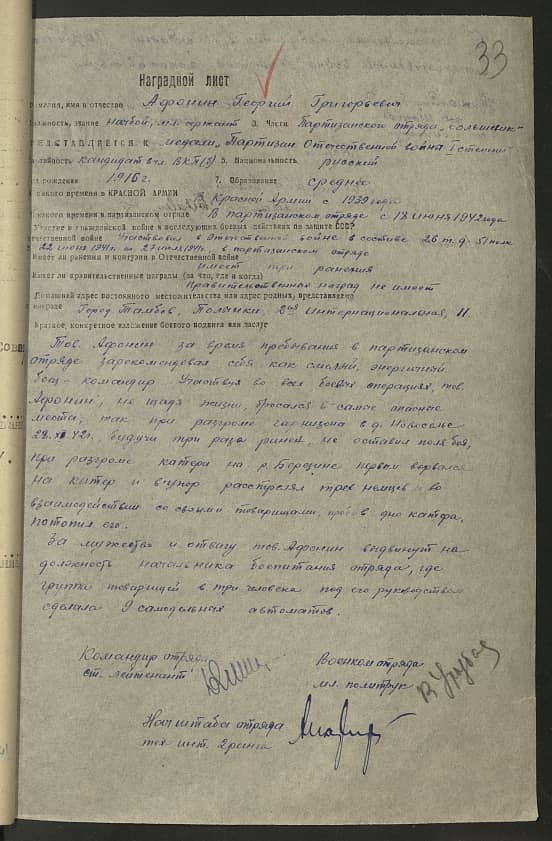 33
Наградной лист
Фамилия, имя и отчество Афонин Георгий Григорьевич
должность, звание начбой, мл. сержант 3. Части Партизанского отряда „Большевик"
ПРЕДСТАВЛЯЕТСЯ К медали „Партизан Отечественной войны I степени
партийность кандидат в чл. ВКП(б) 5. Национальность русский
рождения 1916 г. 7. Образование среднее
какого времени в КРАСНОЙ АРМИИ В Красной Армии с 1939 года
какого времени в партизанском отряде В партизанском отряде с 18 июня 1942 года
Участие в гражданской войне и последующих боевых действиях по защите СССР
отечественной войне Участвовал в Отечественной войне в составе 26 т.д. 51 полк
22 июня 1941 по 27 июля 1941г. в партизанском отряде
Имеет ли ранения и контузии в Отечественной войне
имеет три ранения
Имеет ли правительственные награды (за что, где и когда)
Правительственных наград не имеет
Домашний адрес постоянного местожительства или адрес родных, представленно
награде Город Тамбов, Полынки, 2ая Интернациональная, 11.
Краткое, конкретное изложение боевого подвига или заслуг
Тов. Афонин за время пребывания в партизанском
отряде зарекомендовал себя как смелый, энергичный
боец-командир. Участвуя во всех боевых операциях, тов.
Афонин, не щадя жизни, бросался в самое опасное
место; так при разгроме гарнизона в д. Новоселье
28.XI 42г. будучи три раза ранен, не оставил поля боя,
при разгроме катера на р. Березине первым ворвался
на катер и в упор расстрелял трех немцев и во
взаимодействии со своими товарищами, пробив дно катера,
потопил его.
За мужество и отвагу тов. Афонин выдвинут на
должность начальника боепитания отряда, где
группа товарищей в три человека под его руководством
сделала 9 самодельных автоматов.
Командир отряда
ст. лейтенант
Военком отряда
мл. политрук
Нач штаба отряда
тех инт. 2 ранга